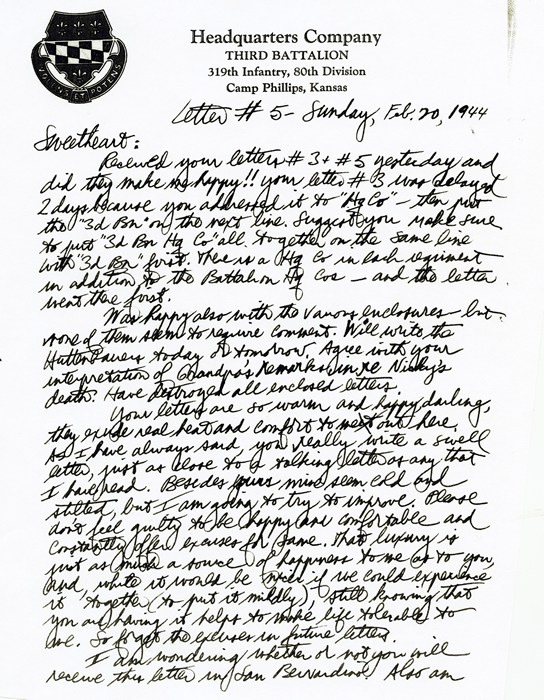 VOLENS ET POTENS
Headquarters Company
THIRD BATTALION
319th Infantry, 80th Division
Camp Phillips, Kansas
Letter # 5 - Sunday, Feb. 20, 1944
Sweetheart:
Received your letters # 3 + # 5 yesterday and
did they make me happy!! your letter # 3 was delayed
2 days because you addressed it to "Hq Co" - then put
the "3d Bn" on the next line. Suggest you make sure
to put "3d Bn Hq Co" all together on the same line
with "3d Bn" first. There is a Hq Co in each regiment
in addition to the Battalion Hq Cos - and the letter
went there first.
Was happy also with the various enclosures - but
none of them seem to require comment. Will write the
today or tomorrow. Agree with your
interpretation of Grandpa's remarks in re Nicky's
death. Have destroyed all enclosed letters.
Your letters are so warm and happy darling,
they exude real heat and comfort to me out here.
As I have always said, you really write a swell
letter, just as close to a talking letter as any that
I have read. Besides yours mine seem cold and
stilted, but I am going to try to improve. Please
don't feel guilty to be happy and comfortable and
constantly offer excuses for same. That luxury is
just as much a source of happiness to me as to you,
and, while it would be nicer if we could experience
it together (to put it mildly), still knowing that
you are having it helps to make life tolerable to
me. So forget the excuses in future letters.
I am wondering whether or not you will
receive this letter in San Bernardino. Also am